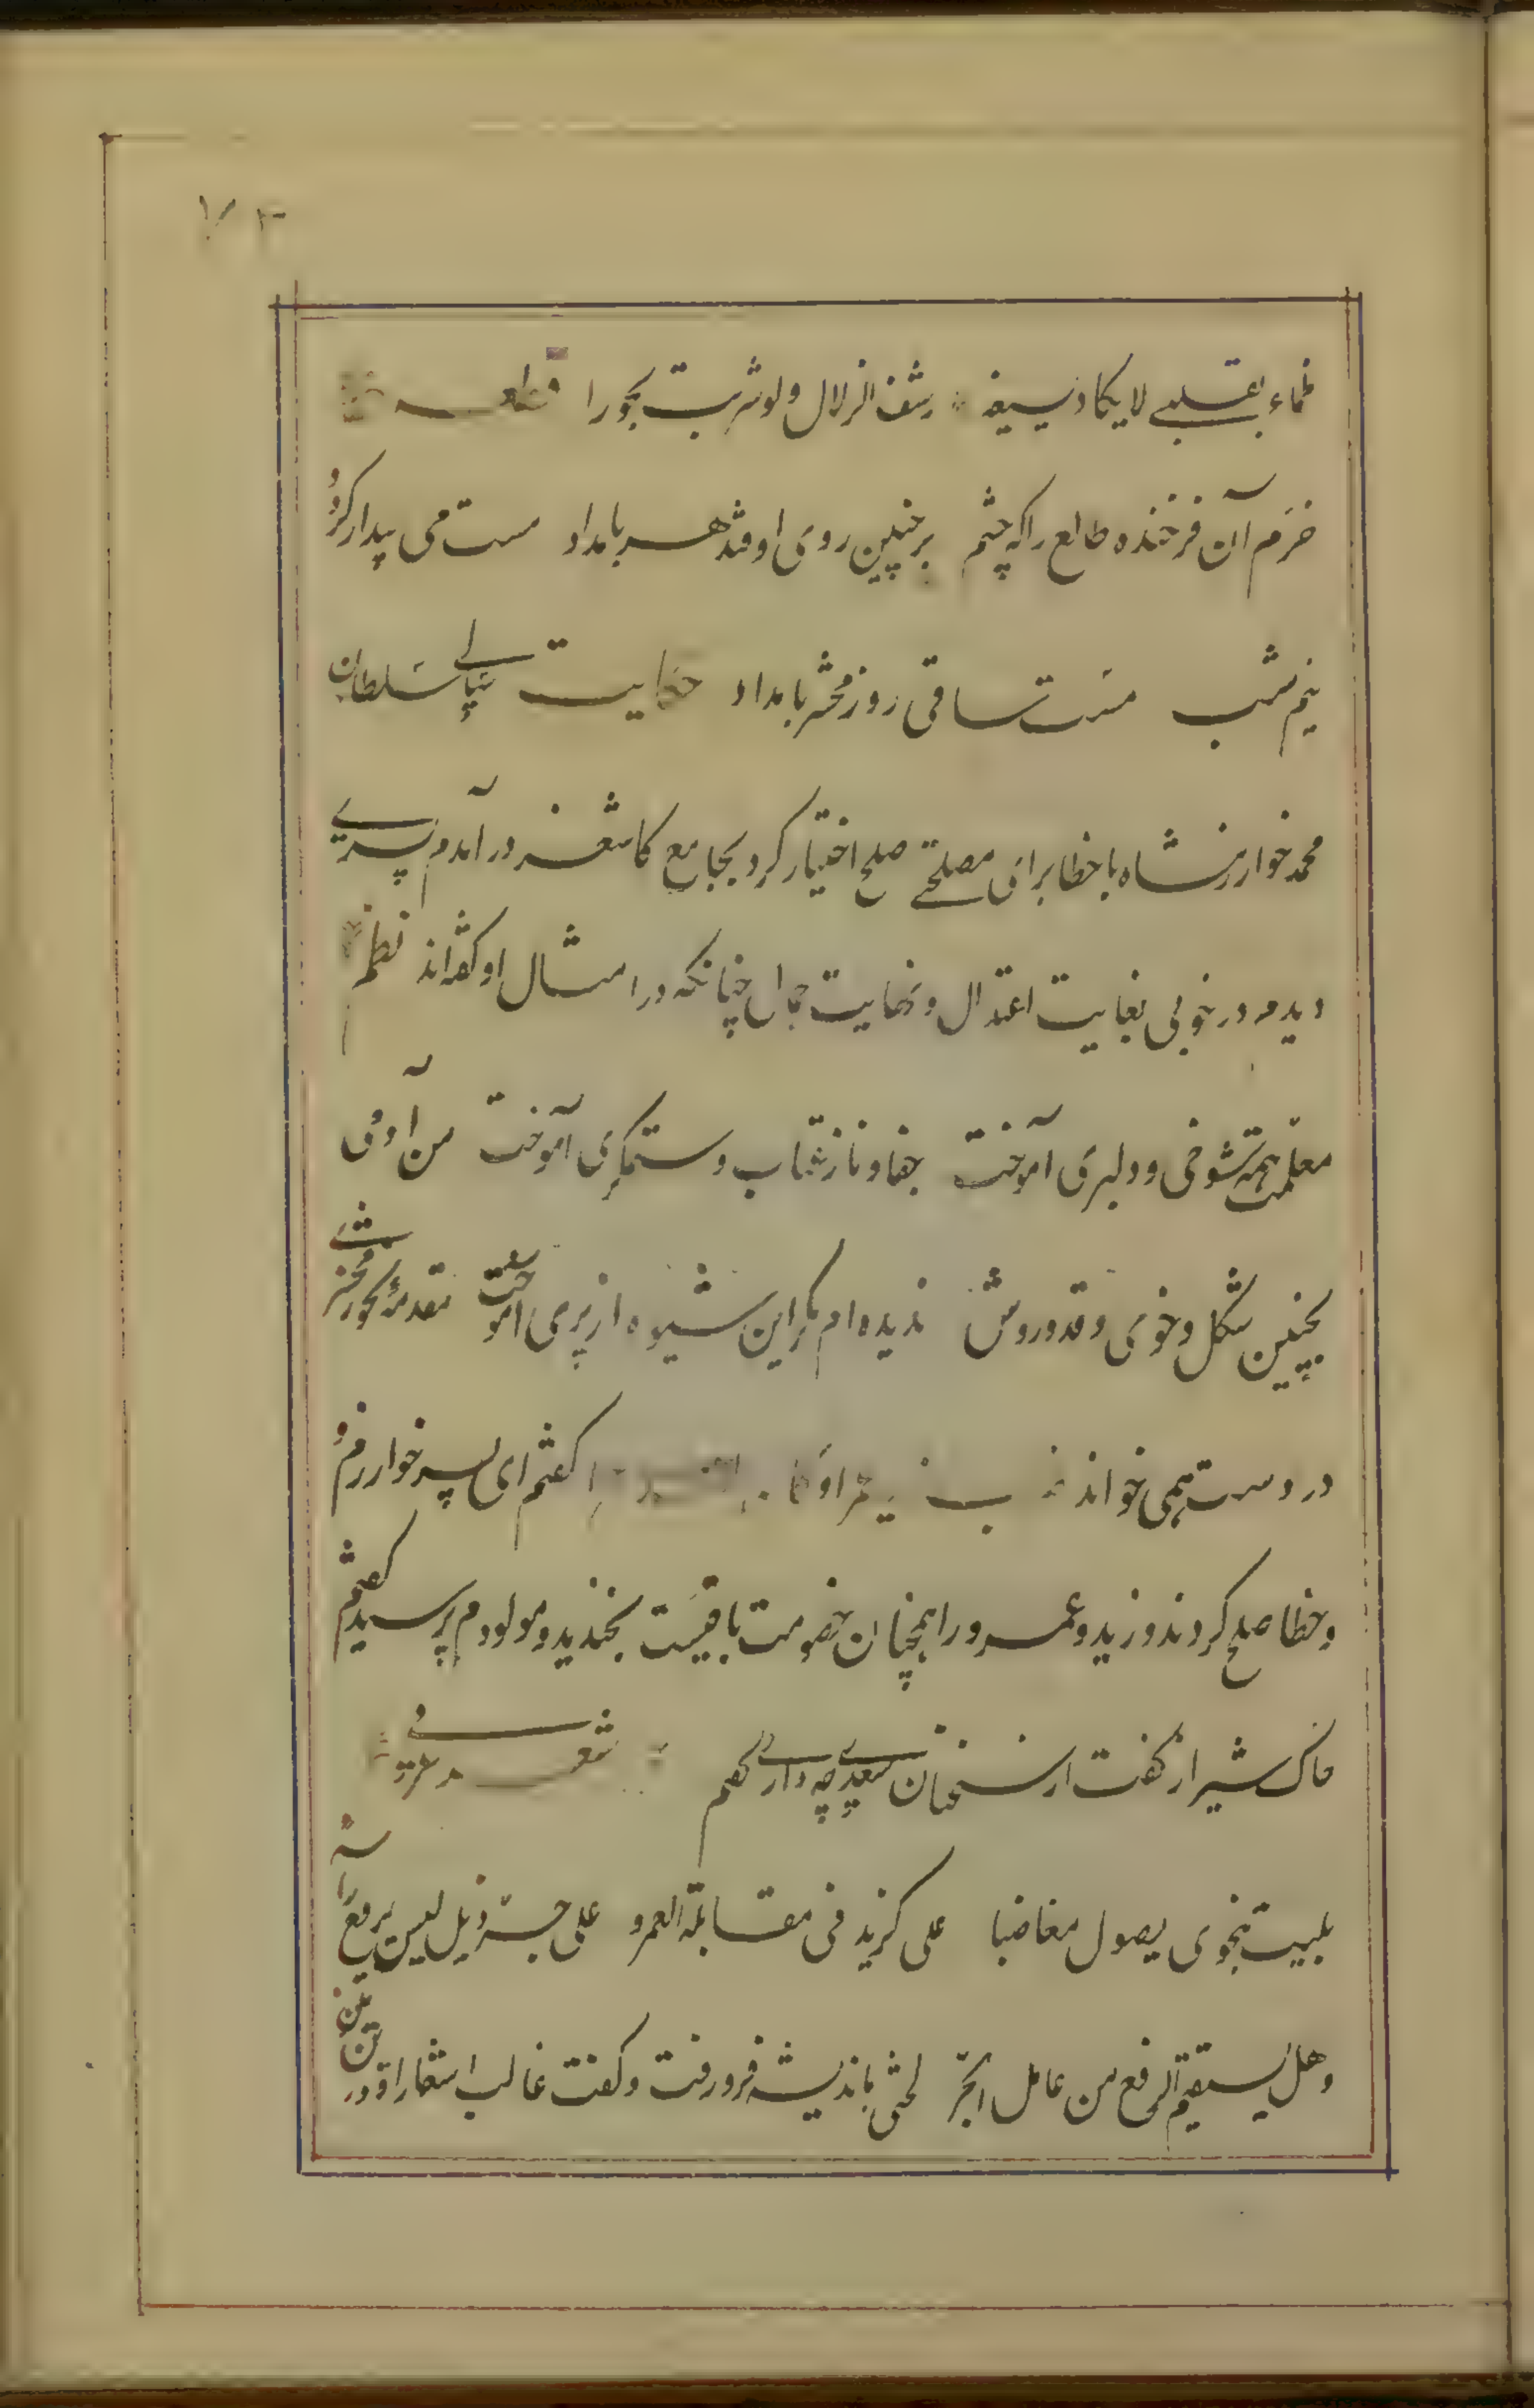 ظماء بقلبی لا یکاد یسیغه رشف الزلال ولو شربت بحورا قطعه
خرم آن فرخنده طالع را که چشم بر چنین روی اوفتد هر بامداد مست می بیدار کردد
نیم شب مست ساقی روز محشر بامداد حکایت سالی سلطان
محمد خوارزمشاه با خطا برای مصلحتی صلح اختیار کرد بجامع کاشغر در آمدم پسری
دیدم در خوبی بغایت اعتدال و نهایت جمال چنانکه در امثال او کفته‌اند نظم
معلمت همه شوخی و دلبری آموخت جفا و ناز و عتاب و ستمکری آموخت من آدمی
بچنین شکل و خوی و قد و روش ندیده‌ام مکر این شیوه از پری آموخت مقدمهٔ نحو زمخشری
در دست همی خواند ضرب زید عمراو کفتم ای پسر خوارزم و
و خطا صلح کردند و زید و عمرو را همچنان خصومت باقیست بخندید و مولودم پرسید کفتم
خاک شیراز کفت از سخنان سعدی چه داری کفتم شعر عربی
بلیت بنحوی یصول مغاضبا علی کزید فی مقابلة العمرو علی جر ذیل لیس یرفع راسه
وهل یستقیم الرفع من عامل الجر لختی باندیشه فرو رفت و کفت غالب اشعار او در این